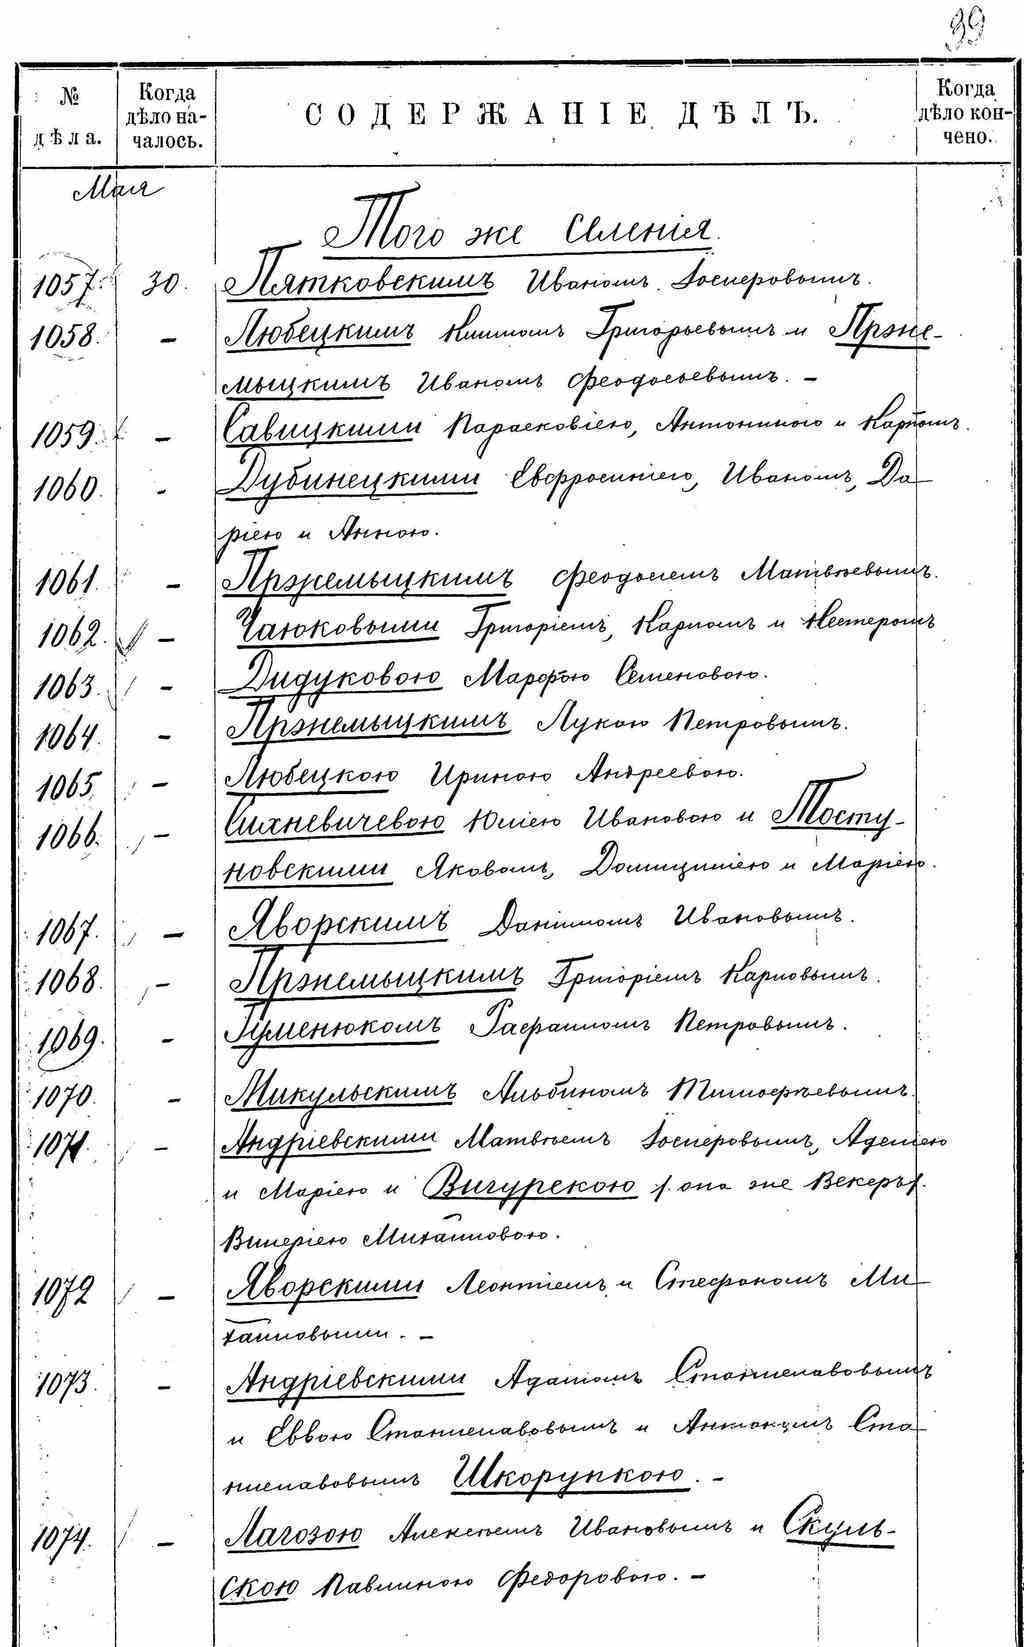 39
№ дѣла.
Когда дѣло началось.
СОДЕРЖАНІЕ ДѢЛЪ.
Когда дѣло кончено.
Мая
Того же Селенія.
1057. 30. Пятковскимъ Иваномъ Іосиѳовымъ.
1058. – Любецкимъ Григорьевымъ и Прже-
мыцкимъ Иваномъ Феодосьевымъ. –
1059. – Савицкими Парасковіею, Антониною и Карпомъ.
1060. - Дубинецкими Евфросиніею, Иваномъ, Да
ріею и Анною.
1061. – Пржемыцкимъ Феодосіемъ Матвѣевымъ.
1062. – Чаюковыми Григоріемъ, Карпомъ и Нестеромъ
1063. – Дидуковою Марфою Семеновою.
1064. – Пржемыцкимъ Лукою Петровымъ.
1065. – Любецкою Ириною Андреевою.
1066. – Сихневичевою Юліею Ивановою и Тосту-
новскими Яковомъ, Домицеліею и Маріею.
1067. – Яворскимъ Даніиломъ Ивановымъ.
1068. – Пржемыцкимъ Григоріемъ Карповымъ.
1069. – Гуменюкомъ Рафаиломъ Петровымъ.
1070. – Микульскимъ Альбиномъ Тимофѣевымъ.
1071. – Андріевскими Матвѣемъ Іосиѳовымъ, Аделіею
и Маріею и Вигурскою /. она же Векеръ /.
Валеріею Михайловою.
1072 – Яворскими Леонтіемъ и Стефаномъ Ми
хайловыми. –
1073. – Андріевскими Адамомъ Станиславовымъ
и Еввою Станиславовымъ и Ста
ниславовымъ Шкорупкою. –
1074. – Лагозою Алексѣемъ Ивановымъ и Скуль-
скою Павлиною Федоровою. –